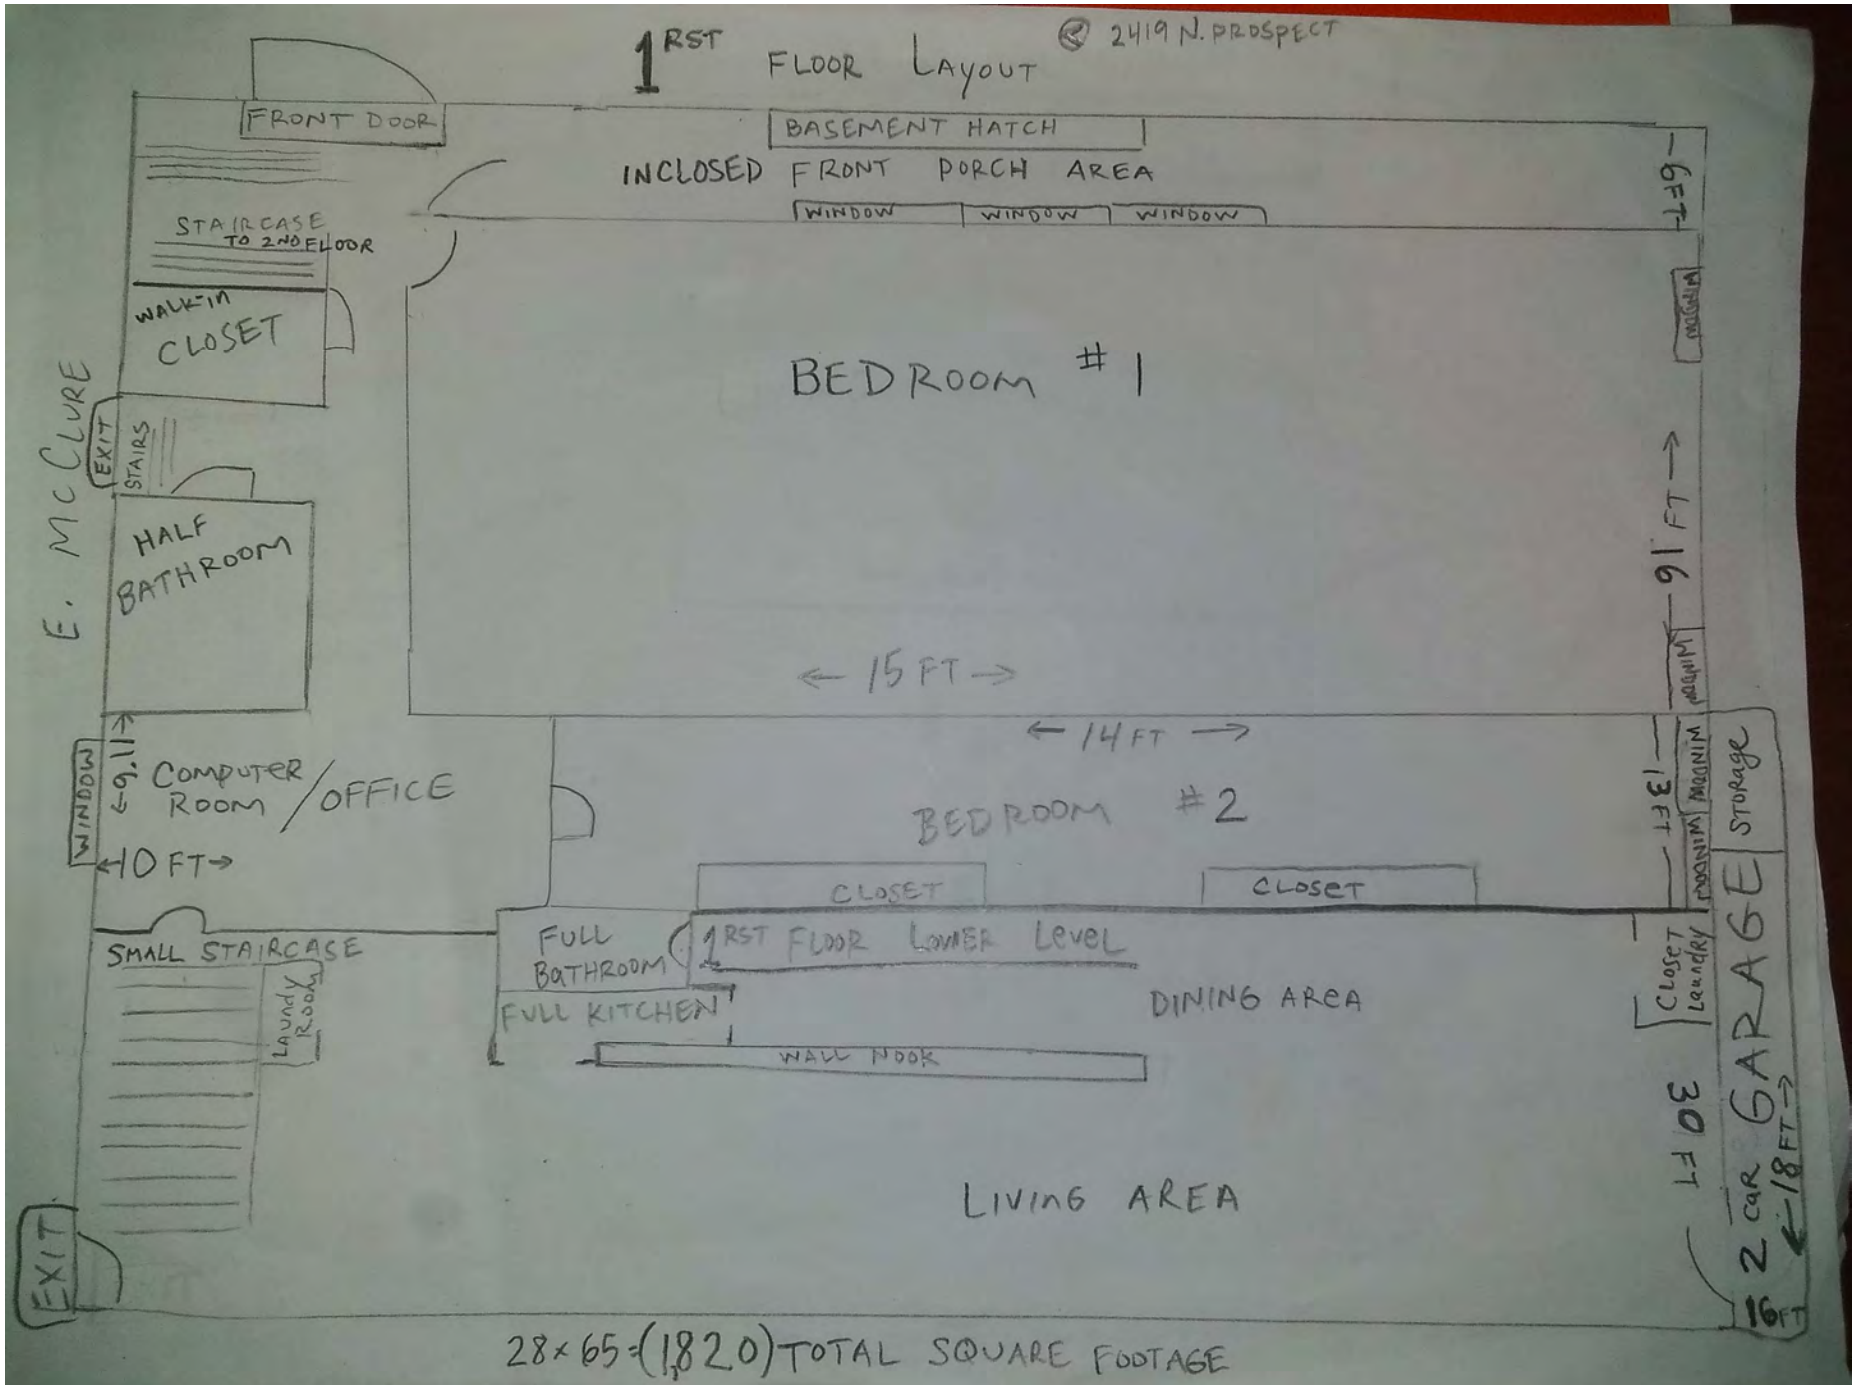 1RST FLOOR LAYOUT @ 2419 N. PROSPECT
FRONT DOOR
BASEMENT HATCH
INCLOSED FRONT PORCH AREA
6FT
WINDOW WINDOW WINDOW
STAIRCASE
TO 2ND FLOOR
WINDOW
WALK-IN
CLOSET
BEDROOM #1
E. MCCLURE
EXIT
STAIRS
16 FT
HALF
BATHROOM
15 FT
WINDOW
14 FT
WINDOW
9.11
COMPUTER
ROOM / OFFICE
10 FT
BEDROOM #2
13 FT
WINDOW
WINDOW
STORAGE
CLOSET
CLOSET
SMALL STAIRCASE
LAUNDY
ROOM
FULL
BATHROOM
1RST FLOOR LOWER LEVEL
FULL KITCHEN
DINING AREA
CLOSET
Laundry
WALL NOOK
30 FT
2 CAR GARAGE
18 FT
LIVING AREA
EXIT
16FT
28×65=(1,820) TOTAL SQUARE FOOTAGE